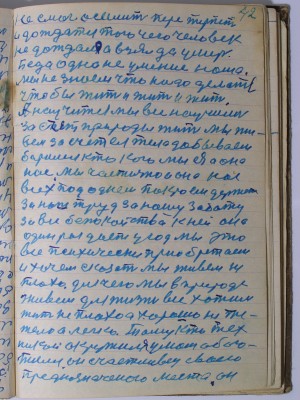 42
не смог осилить перетерпеть
и дождаться того чего человек
не дождался взял да умер.
Беда одна не умение наша.
мы не знаем что надо делать
чтобы жить и жить и жить.
А научились мы все научились
за счет природы жить мы жи-
вем за счет её тела добываем
боремся кто кого мы её а она
нас. мы частично она нас
всех под одней
за наш труд за нашу заботу
за все беспокойства к ней она
один раз дает угоды это
все психически приобретаем
и хочем сказать мы живем не
плохо. для чего мы в природе
живем для жизни все хотим
жить не плохо а хорошо не тя-
жело а легко. Тому кто тех
никой окружился умом обога-
тился он счастливец своего
предназначеного места. он